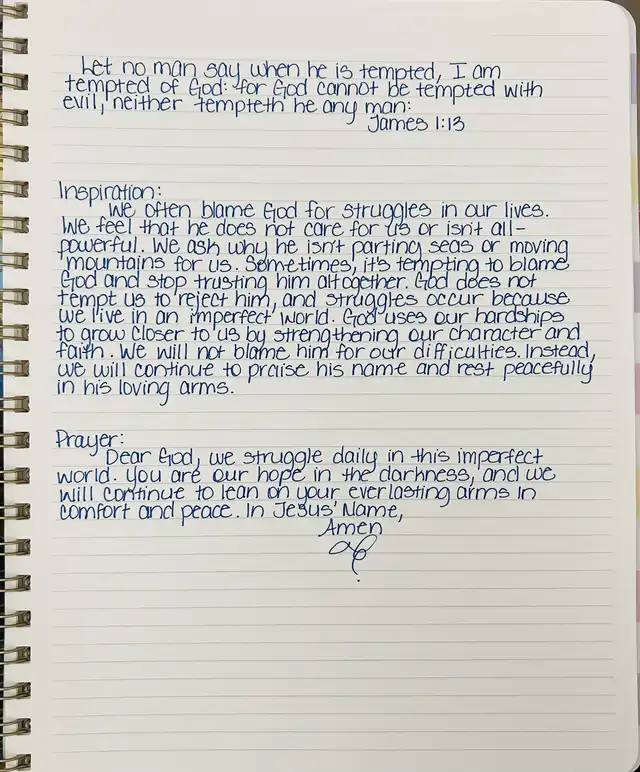 Let no man say when he is tempted, I am
tempted of God: for God cannot be tempted with
evil, neither tempteth he any man:
James 1:13
Inspiration:
We often blame God for struggles in our lives.
We feel that he does not care for us or isn't all-
powerful. We ask why he isn't parting seas or moving
mountains for us. Sometimes, it's tempting to blame
God and stop trusting him altogether. God does not
tempt us to reject him, and struggles occur because
we live in an imperfect world. God uses our hardships
to grow closer to us by strengthening our character and
faith. We will not blame him for our difficulties. Instead,
we will continue to praise his name and rest peacefully
in his loving arms.
Prayer:
Dear God, we struggle daily in this imperfect
world. You are our hope in the darkness, and we
will continue to lean on your everlasting arms in
comfort and peace. In Jesus' Name,
Amen